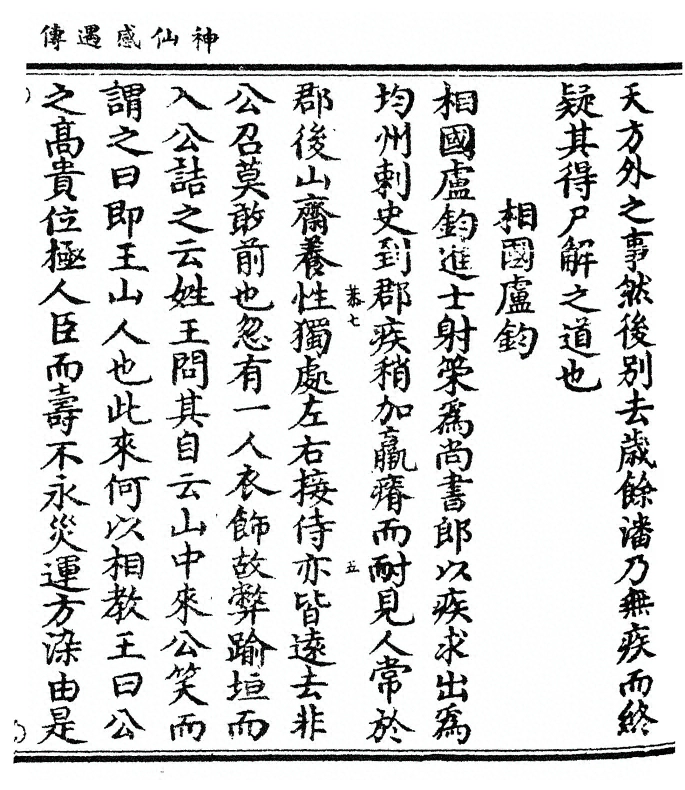 神仙感遇傳
天方外之事然後別去歲餘潘乃無疾而終
疑其得尸解之道也
相國盧鈞
相國盧鈞進士射策爲尚書郎以疾求出爲
均州刺史到郡疾稍加羸瘠而耐見人常於
恭七
五
郡後山齋養性獨處左右接侍亦皆遠去非
公召莫敢前也忽有一人衣飾故弊踰垣而
入公詰之云姓王問其自云山中來公笑而
謂之曰即王山人也此來何以相教王曰公
之高貴位極人臣而壽不永災運方染由是